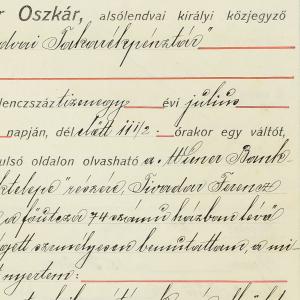 r Oszkár, alsólendvai királyi közjegyző
dvai Takarékpénztár"
lenczszáz tizenegy évi július
napján, dél előtt 11 1/2 órakor egy váltót,
ulsó oldalon olvasható a Wiener Bank
ktelepe" részére, Tivadar Ferencz
a főutcza 74 számú házban lévő
személyesen bemutattam, a mi-
t nyertem: